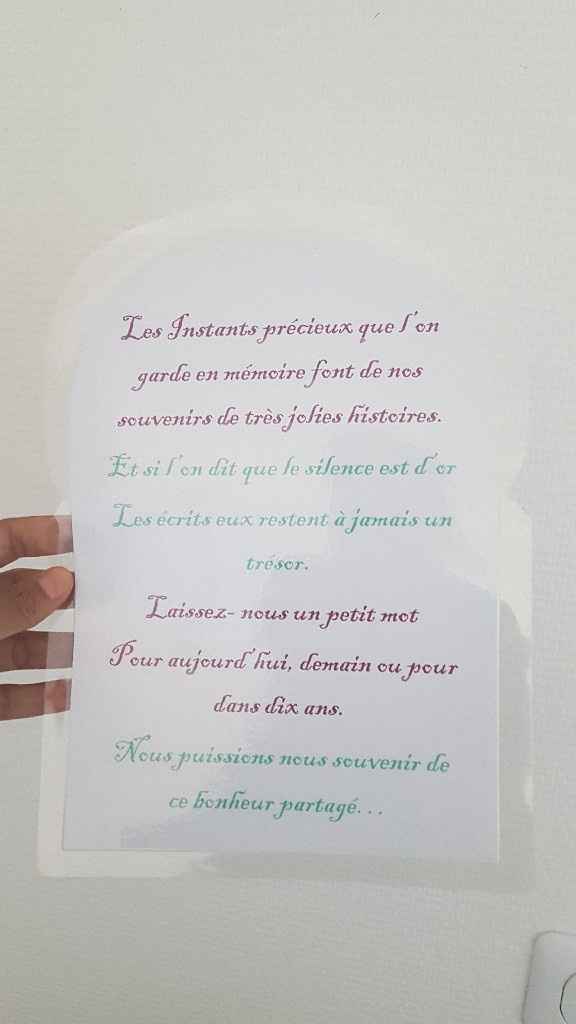 Les Instants précieux que l'on
garde en mémoire font de nos
souvenirs de très jolies histoires.
Et si l'on dit que le silence est d'or
Les écrits eux restent à jamais un
trésor.
Laissez- nous un petit mot
Pour aujourd'hui, demain ou pour
dans dix ans.
Nous puissions nous souvenir de
ce bonheur partagé...